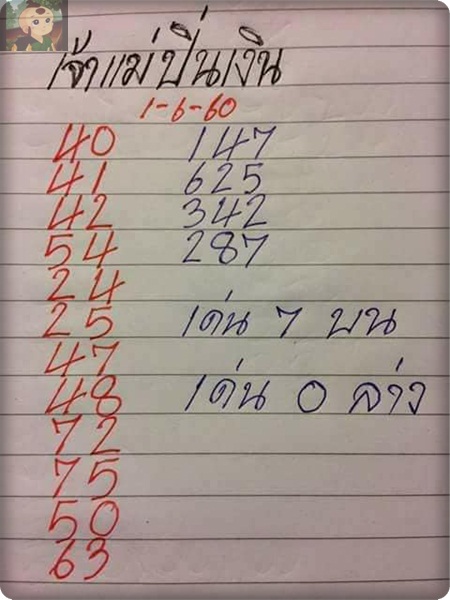 เจ้าแม่ปิ่นเงิน
1-6-60
40 147
41 625
42 342
54 287
24
25 เด่น 7 บน
47
48 เด่น 0 ล่าง
72
75
50
63